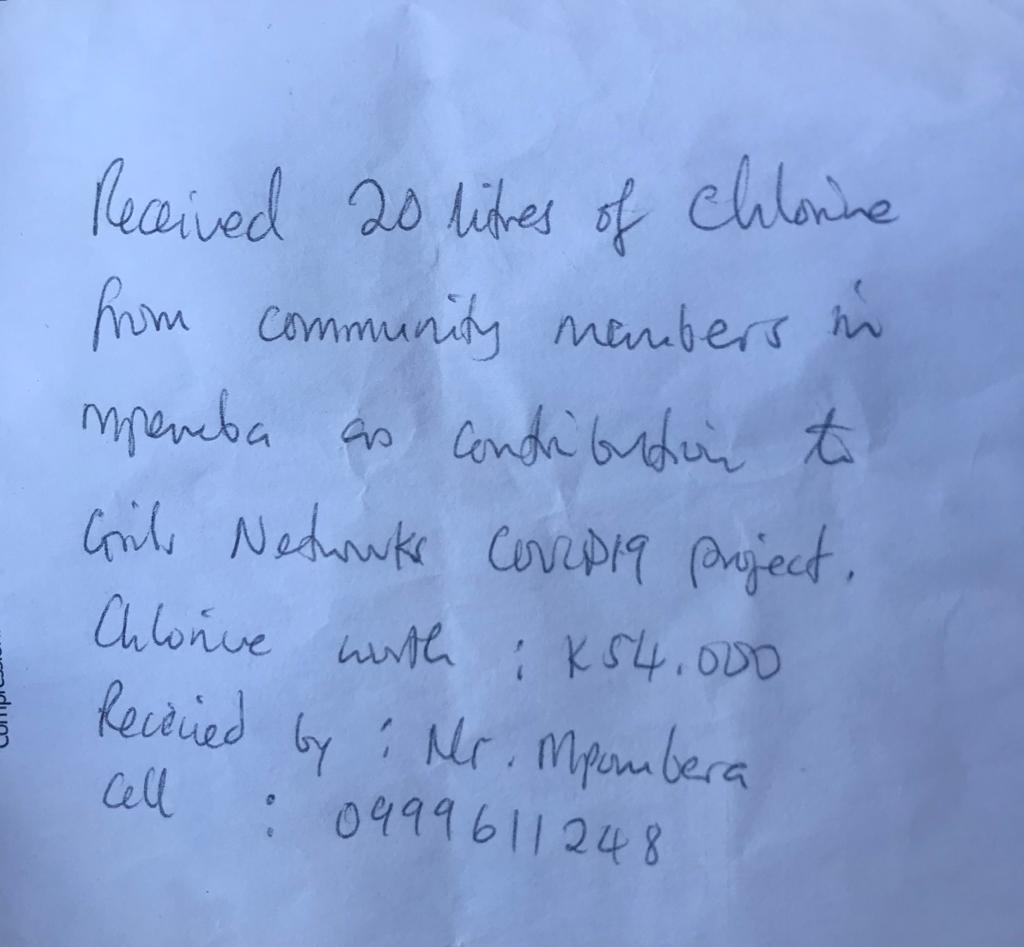 Received 20 litres of Chlorine
from community members in
Mpemba as contribution to
Girls Networks COVID19 project.
Chlorine worth : K54.000
Received by : Mr. Mpombera
Cell : 0999611248